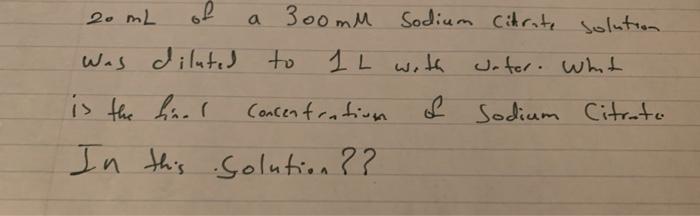 20 mL of a 300 mM Sodium Citrate solution
was diluted to 1 L with water. What
is the final concentration of Sodium Citrate
In this Solution??